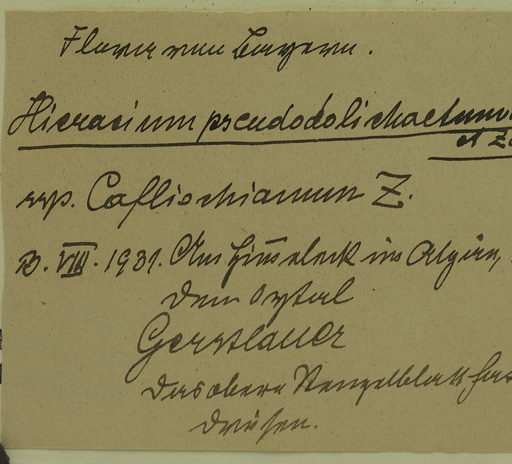 Flora von Bayern.
Hieracium pseudodolichaetum
et Z
ssp. Caflischianum Z.
B. VIII. 1931. Am Himmeleck im Algäu,
dem Oytal
Gerstlauer
Das obere Stengelblatt hat
Drüsen.